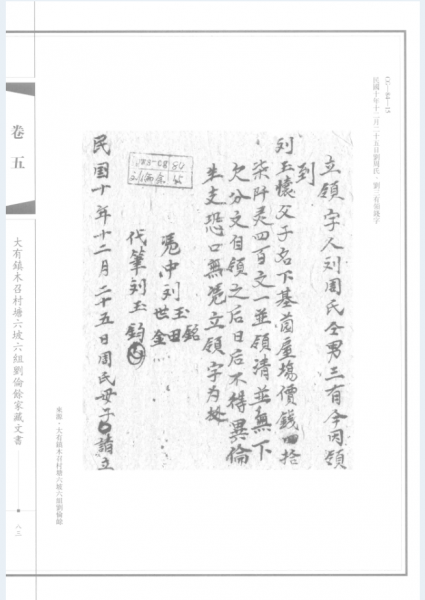 民國十年十二月二十五日劉周氏、劉三有領錢字
立領字人刘周氏仝男三有今因領
到
刘玉懷父子名下基
價钱四拾
柒阡零四百文一並領清並無下
欠分文自領之后日后不得異倫
生支恐口無凭立領字为
凭中刘玉銘田
世金
代筆刘玉鈞
民国十年十二月二十五日周氏母子請立
來源：大有鎮木召村塘六坡六組劉倫餘
卷五
大有鎮木召村塘六坡六組劉倫餘家藏文書
八三